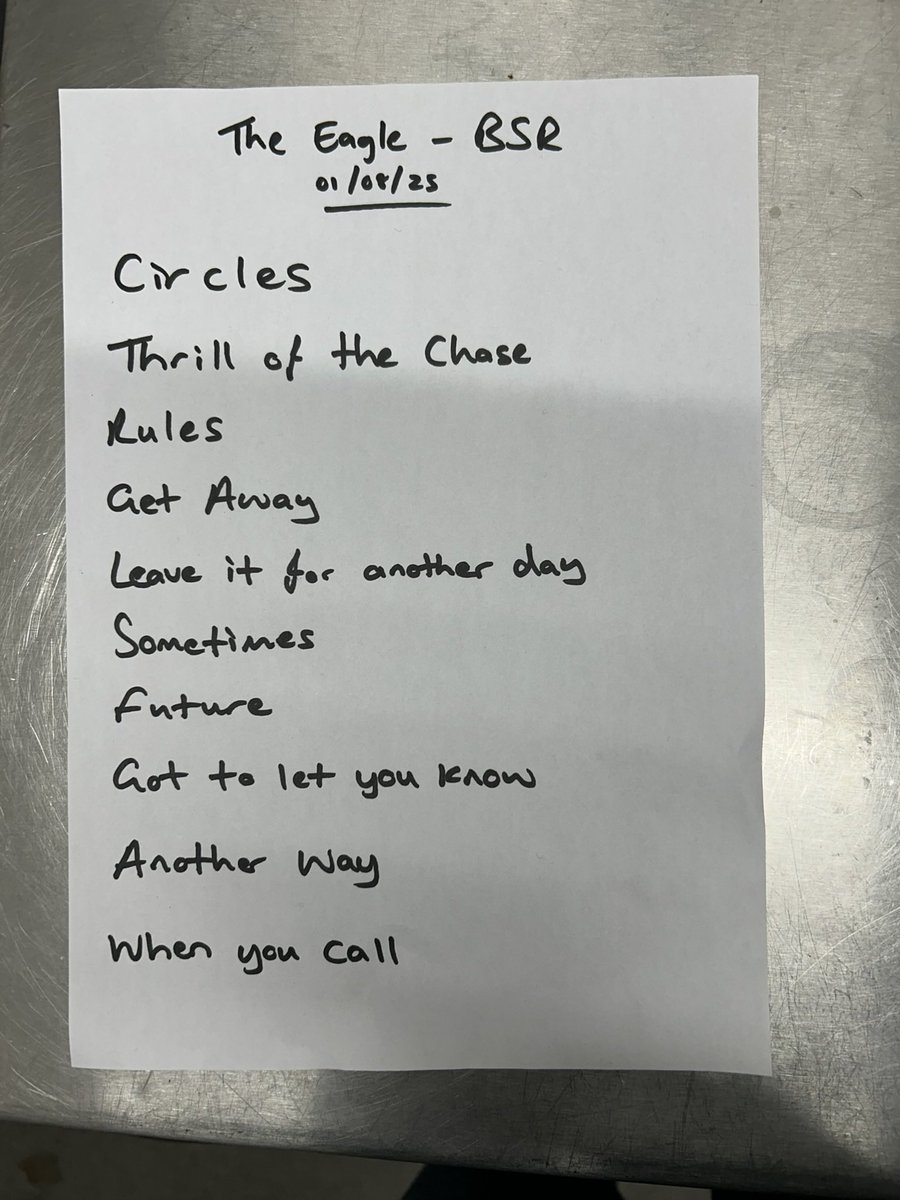 The Eagle - BSR
01/08/25
Circles
Thrill of the Chase
Rules
Get Away
Leave it for another day
Sometimes
Future
Got to let you know
Another Way
When you call